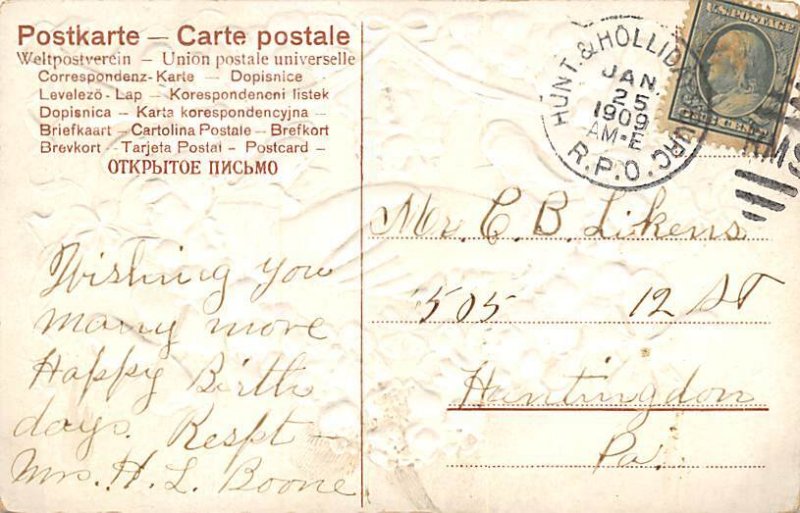 Postkarte — Carte postale
Weltpostverein — Union postale universelle
Correspondenz-Karte — Dopisnice
Levelező-Lap — Korespondencni listek
Dopisnica — Karta korespondencyjna —
Briefkaart — Cartolina Postale — Brefkort
Brevkort — Tarjeta Postal — Postcard —
ОТКРЫТОЕ ПИСЬМО
Wishing you
many more
Happy Birth
days. Respt —
Mrs. H. L. Boone
HUNT. & HOLLIDAYSBURG
JAN.
25
1909
AM-E
R.P.O.
U.S. POSTAGE
Mr. C. B. Likens
505 12 St
Huntingdon
Pa.